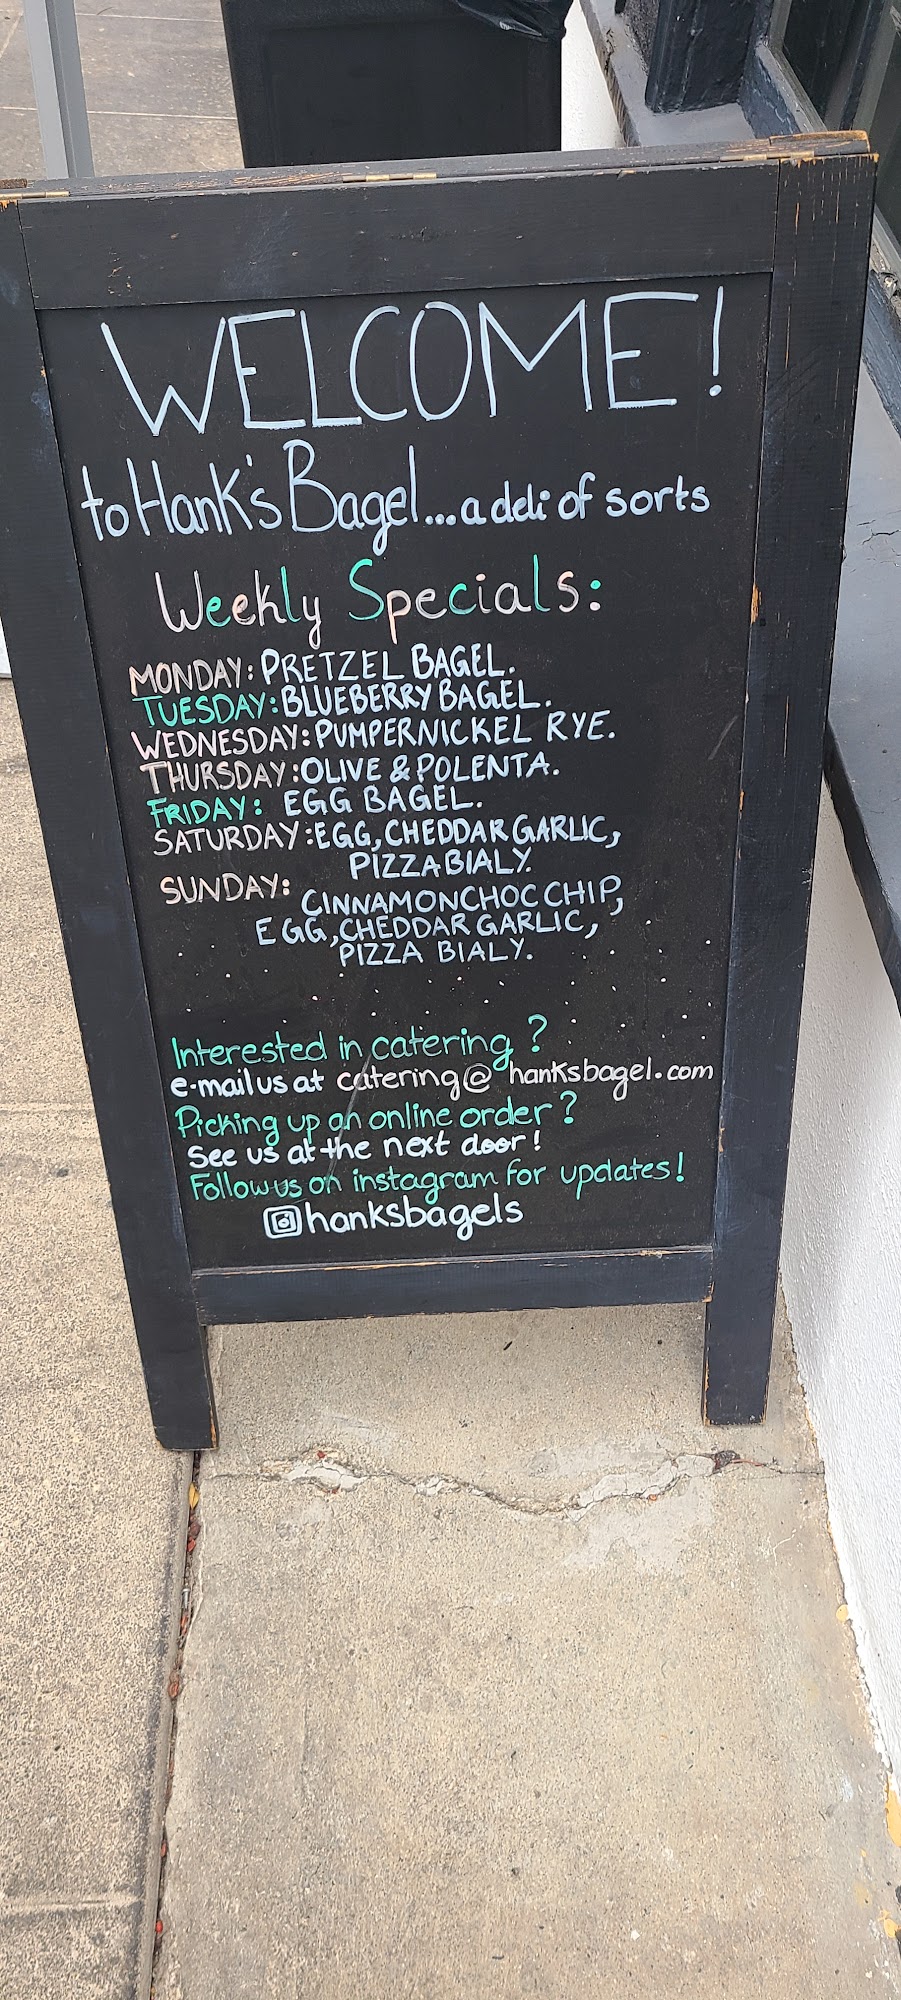 WELCOME!
to Hank's Bagel...a deli of sorts
Weekly Specials:
MONDAY: PRETZEL BAGEL.
TUESDAY: BLUEBERRY BAGEL.
WEDNESDAY: PUMPERNICKEL RYE.
THURSDAY: OLIVE & POLENTA.
FRIDAY: EGG BAGEL.
SATURDAY: EGG, CHEDDAR GARLIC,
PIZZA BIALY.
SUNDAY: CINNAMON CHOC CHIP,
EGG, CHEDDAR GARLIC,
PIZZA BIALY.
Interested in catering?
e-mail us at catering@hanksbagel.com
Picking up an online order?
See us at the next door!
Follow us on instagram for updates!
hanksbagels